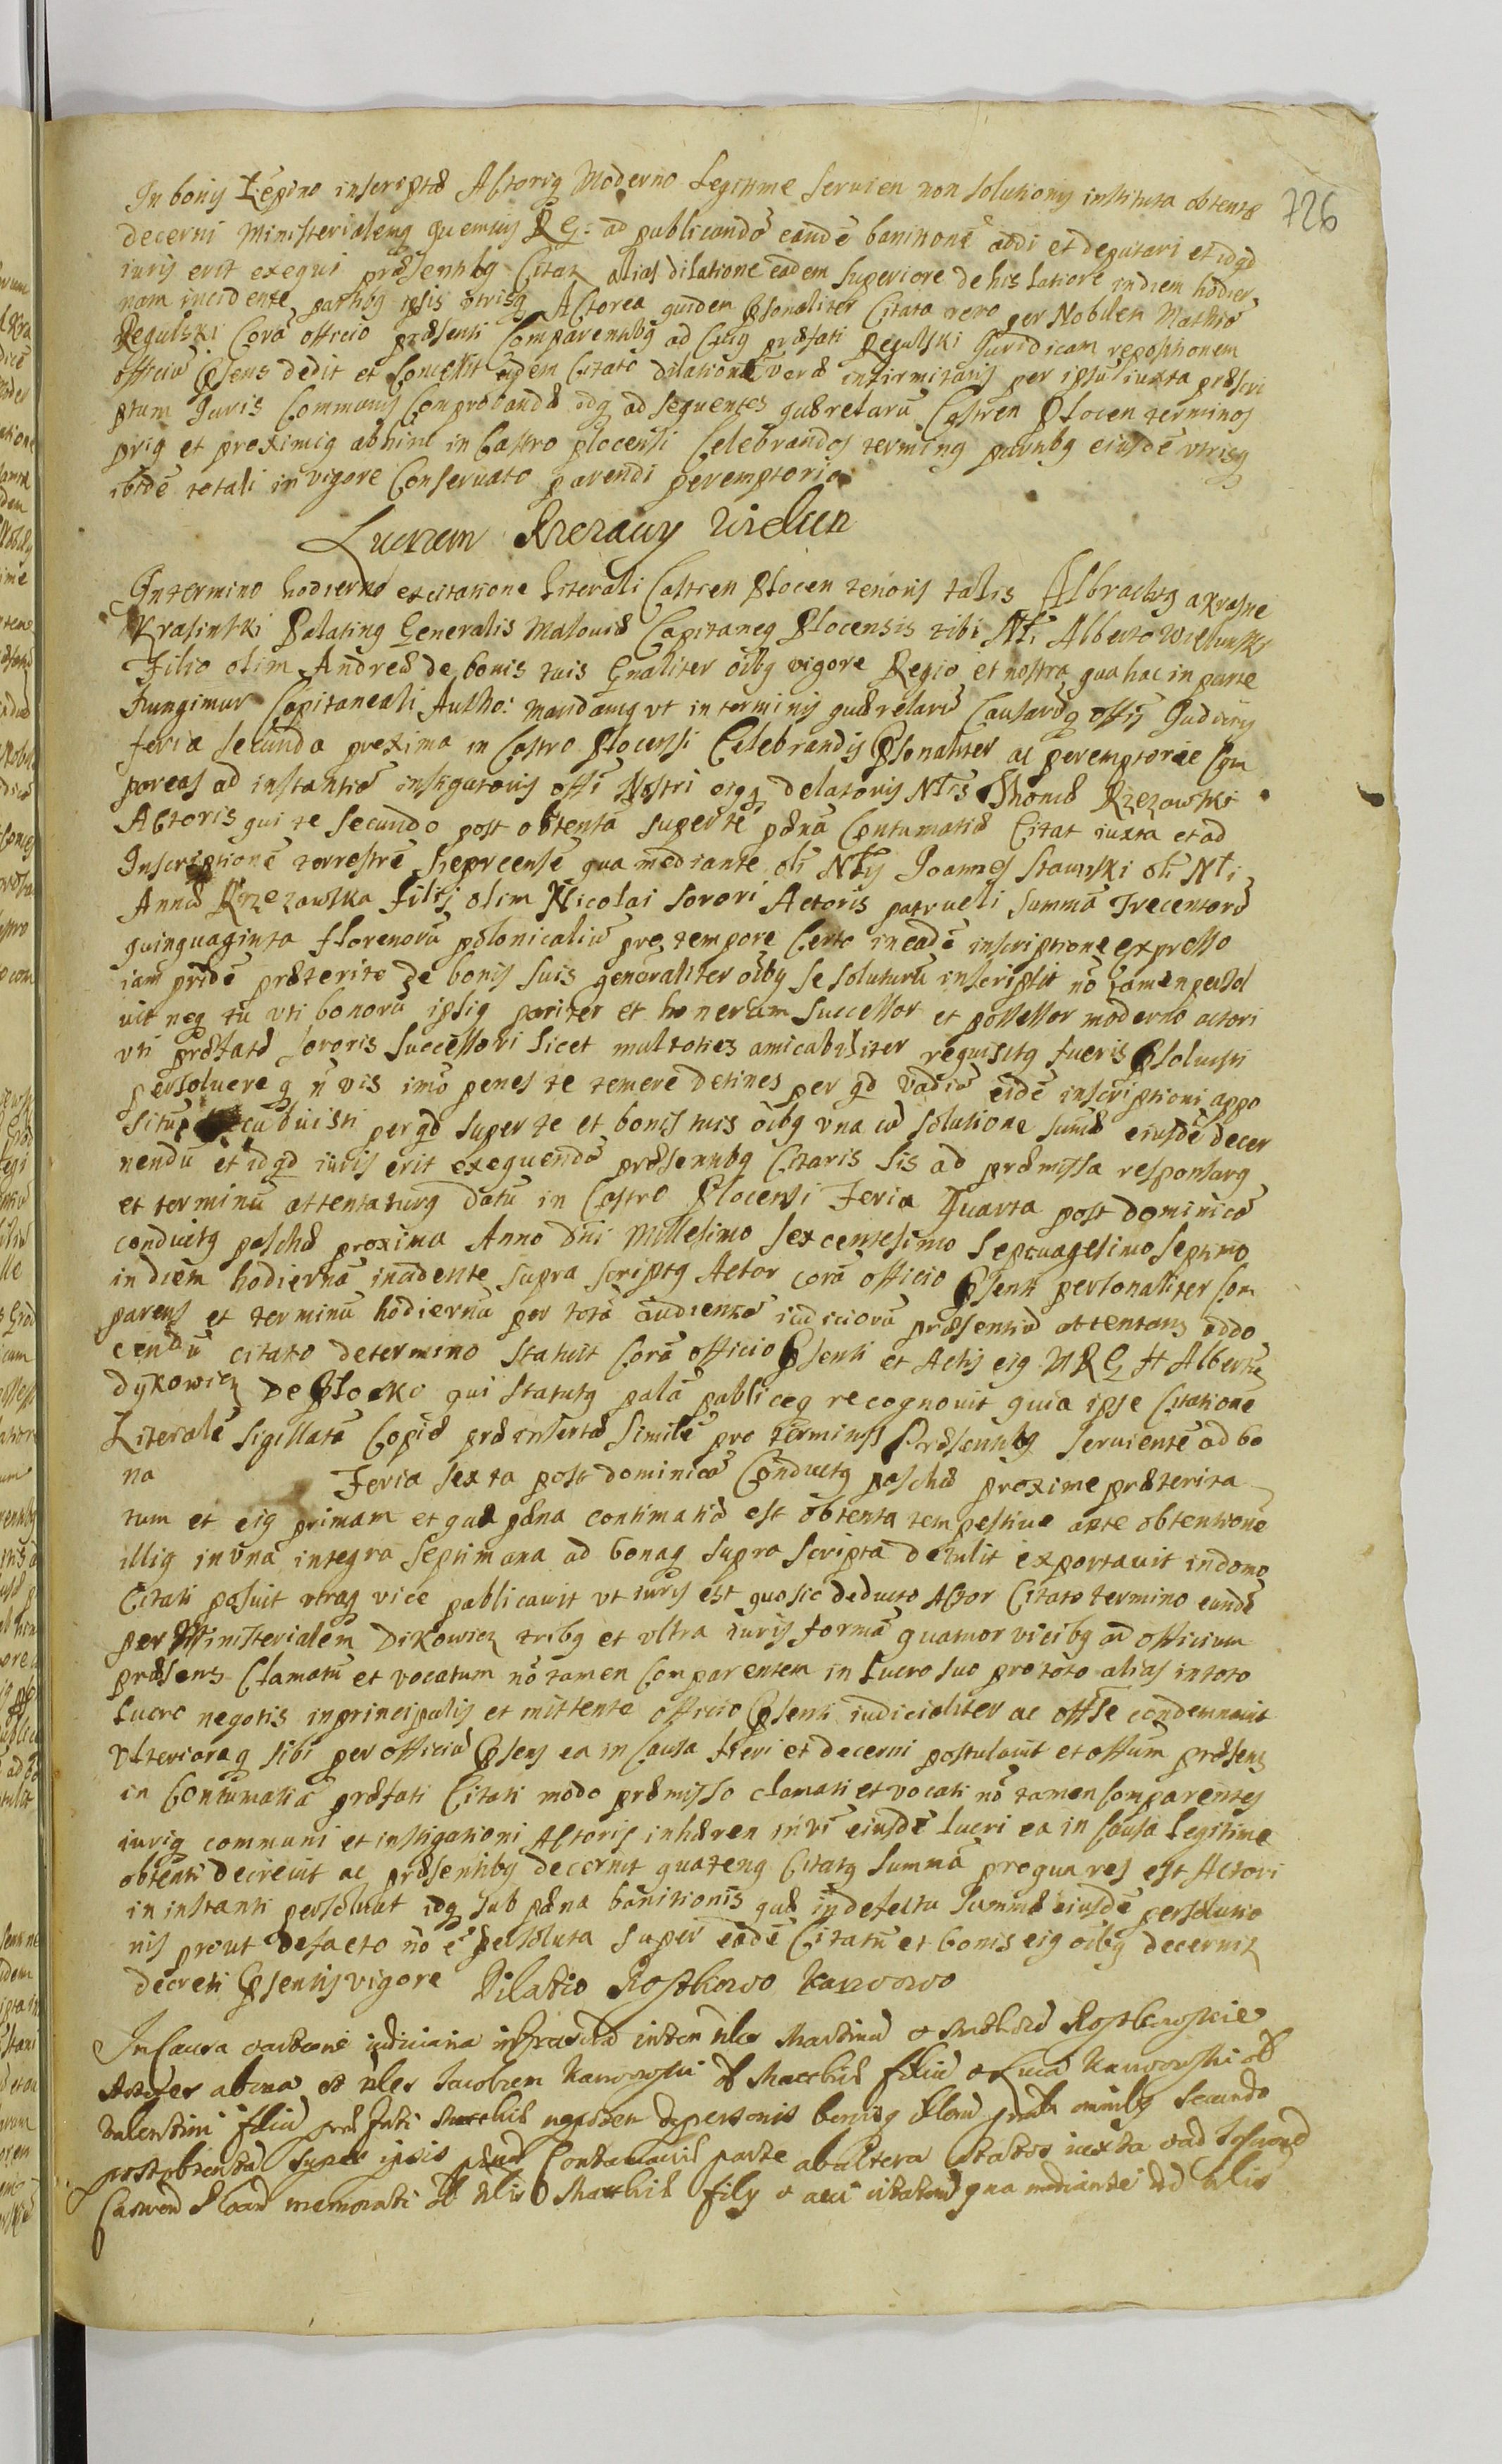 726
In bonis Lępino inscriptæ Actoris Moderno legitime seruien non solutionis instituta obtentæ
decerni Ministerialemq quemuis Rg: ad publicandã eandẽ banitionẽ addi et deputari et idqd
iuris erit exequi præsentibg Citat alias dilatione eadem superiore de his latiore in diem hodier
nam incidente partibg ipsis utrisq Actorea quidem psonaliter Citata vero per Nobilem Mathiã
Regulski Corã officio præsenti Comparentibg ad Cuig præfati Regulski Juridicam repositionem
officiũ psens dedit et Concessit eidem Citato dilationẽ veræ infirmitatis per ipsũ iuxta præscri
ptum Juris Communis Comprobandæ idq ad sequentes quærelarũ Castren Plocen terminos
prig et proximig abhinc in Castro plocensi Celebrandos terming partibg eiusdẽ vtrisq
ibidẽ totali in vigore Conseruato parendi peremptorig
Lucrum Rzezawy Wielun
In termino hodierno ex citatione literali Castren Plocen tenoris talis Albrachtg a Krasne
Krasinski Palating Generalis Masouiæ Capitaneg Plocensis tibi Nli Alberto Wielunski
Filio olim Andreæ de bonis tuis Gnaliter oibg vigore Regio et nostra qua hac in parte
Fungimur Capitaneali Autho: mandamg vt in terminis quærelarũ Causarũq offij Judicijs
feria secunda proxima in Castro Plocensi Celebrandis psonaliter ac peremptorie Com
pareas ad instantiã instigatoris offi Nostri eigq delatoris Nlis Thomæ Rzezawski
Actoris qui te secundo post obtentã super te pœnã Contumatiæ Citat iuxta et ad
Inscriptionẽ terrestrẽ Sieprcensẽ qua mediante oli Nlis Joannes Stawski oli Nli
Annæ Rzezawska Filij olim Nicolai sorori Actoris patrueli summã Trecentorũ
quinquaginta florenorũ polonicaliũ pro tempore Certo in eadẽ inscriptione expresso
iam pridẽ præterito de bonis suis generaliter oibg se soluturũ inscripsit nõ tamen persol
uit neq tu vti bonorũ ipsig pariter et honerum successor et possessor moderno actori
vti præfatæ sororis successori licet multoties amicabiliter requisitg fueris psoluisti
persoluereq ñ vis imo penes te temere detines per qd vadiũ eidẽ inscriptioni appo
situm succubuisti per qd super te et bonis tuis oibg vna cũ solutione sumæ eiusdẽ decer
nendũ et idqd iuris erit exequendũ præsentibg Citaris sis ad præmissa responsurg
et terminũ attentaturg datũ in Castro Plocensi Feria Quarta post dominicã
conductg paschæ proxima Anno Dni Millesimo Sexcentesimo Septuagesimo Septimo
in diem hodiernã incidente supra scriptg Actor corã officio psenti personaliter Com
parens et terminũ hodiernũ per totã audientiã iudiciorũ præsentiũ attentans addo
cendũ citato de termino statuit Corã officio psenti et Actis eig MRG Albertũ
Dykowicz de Plocko qui statutg palã publiceq recognouit quia ipse Citationẽ
Literalẽ sigillatã Copiæ præinsertæ similẽ pro terminis Præsentibg seruientẽ ad bo
na Feria sexta post dominicã Conductg paschæ proxime præterita
tum et eig primam et quæ pœna contimatiæ est obtenta tempestiue ante obtentionẽ
illig in vna integra septimana ad bonaq supra scripta detulit exportauit in domo
Citati posuit vtraq vice publicauit vt iuris est quo sic deducto Actor Citato termino eundẽ
per Ministerialem Dikowicz tribg et vltra iuris formã quatuor vicibg ad officium
præsens Clamatũ et vocatum nõ tamen Comparentem in Lucro suo pro toto alias in toto
Lucro negotis in principalis et mittente officio psenti iudicialiter ac offse condemnauit
Vlterioraq sibi per officiũ psens ea in Causa fieri et decerni postulauit et offium præsens
in Contumatiã præfati Citati modo præmisso clamati et vocati nõ tamen Comparentes
iurig communi et instigationi Actoris inhæren in vĩ eiusdẽ lucri ea in Causa Legitime
obtenti decreuit ac præsentibg decernit quateng Citatg Summã pro qua res est Actori
in instanti persoluat idq sub pœna banitionis quæ in defectu summæ eiusdẽ persolutio
nis prout defacto nõ ẽ persoluta super eũdẽ Citatũ et bonis eig oibg decernit
decreti psentis vigore Dilatio Rostkowo Karwowo
In Causa ratione iudiciaria infrascripta inter nles Martinũ et Rostkowskie
Actores ab vna et nles Jacobum Karwowski oli Matthiæ filiũ et Lucã Karwowski oli
Valentini filiũ præfati Matthiæ nepotem de personis bonisq illorũ gnaliter omnibg secundo
post obtentã super ipsis pœnã Contumaciæ parte ab altera Citatos iuxta et ad
memorati oli nlis Matthiæ filij et citatorũ qua mediante nlis